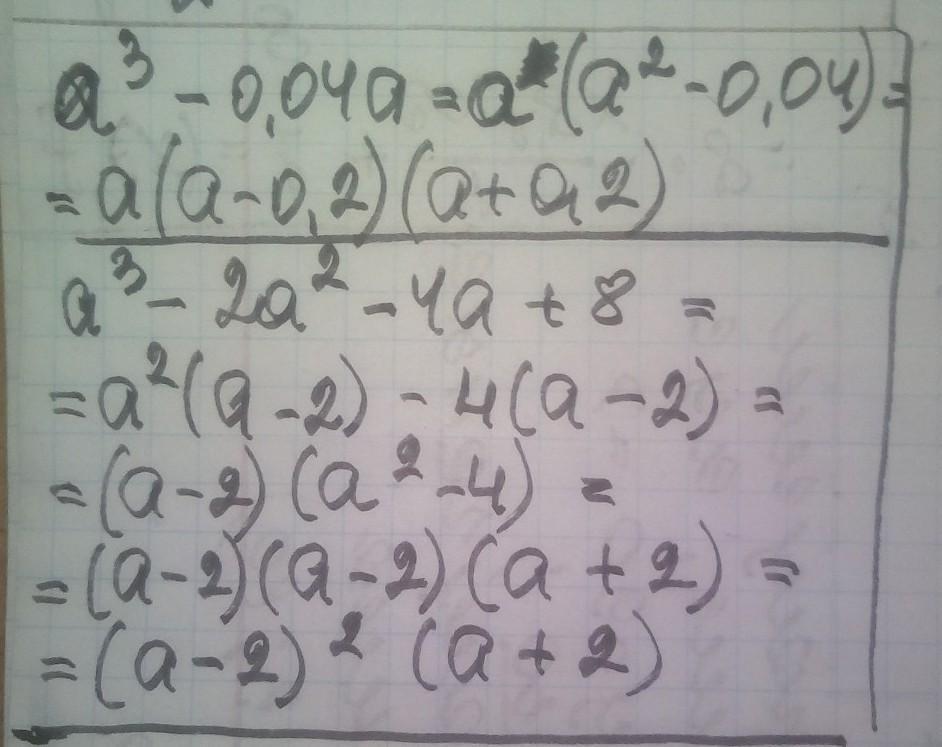 a³ - 0,04a = a (a² - 0,04) =
= a(a - 0,2)(a + 0,2)
a³ - 2a² - 4a + 8 =
= a²(a - 2) - 4(a - 2) =
= (a - 2)(a² - 4) =
= (a - 2)(a - 2)(a + 2) =
= (a - 2)² (a + 2)